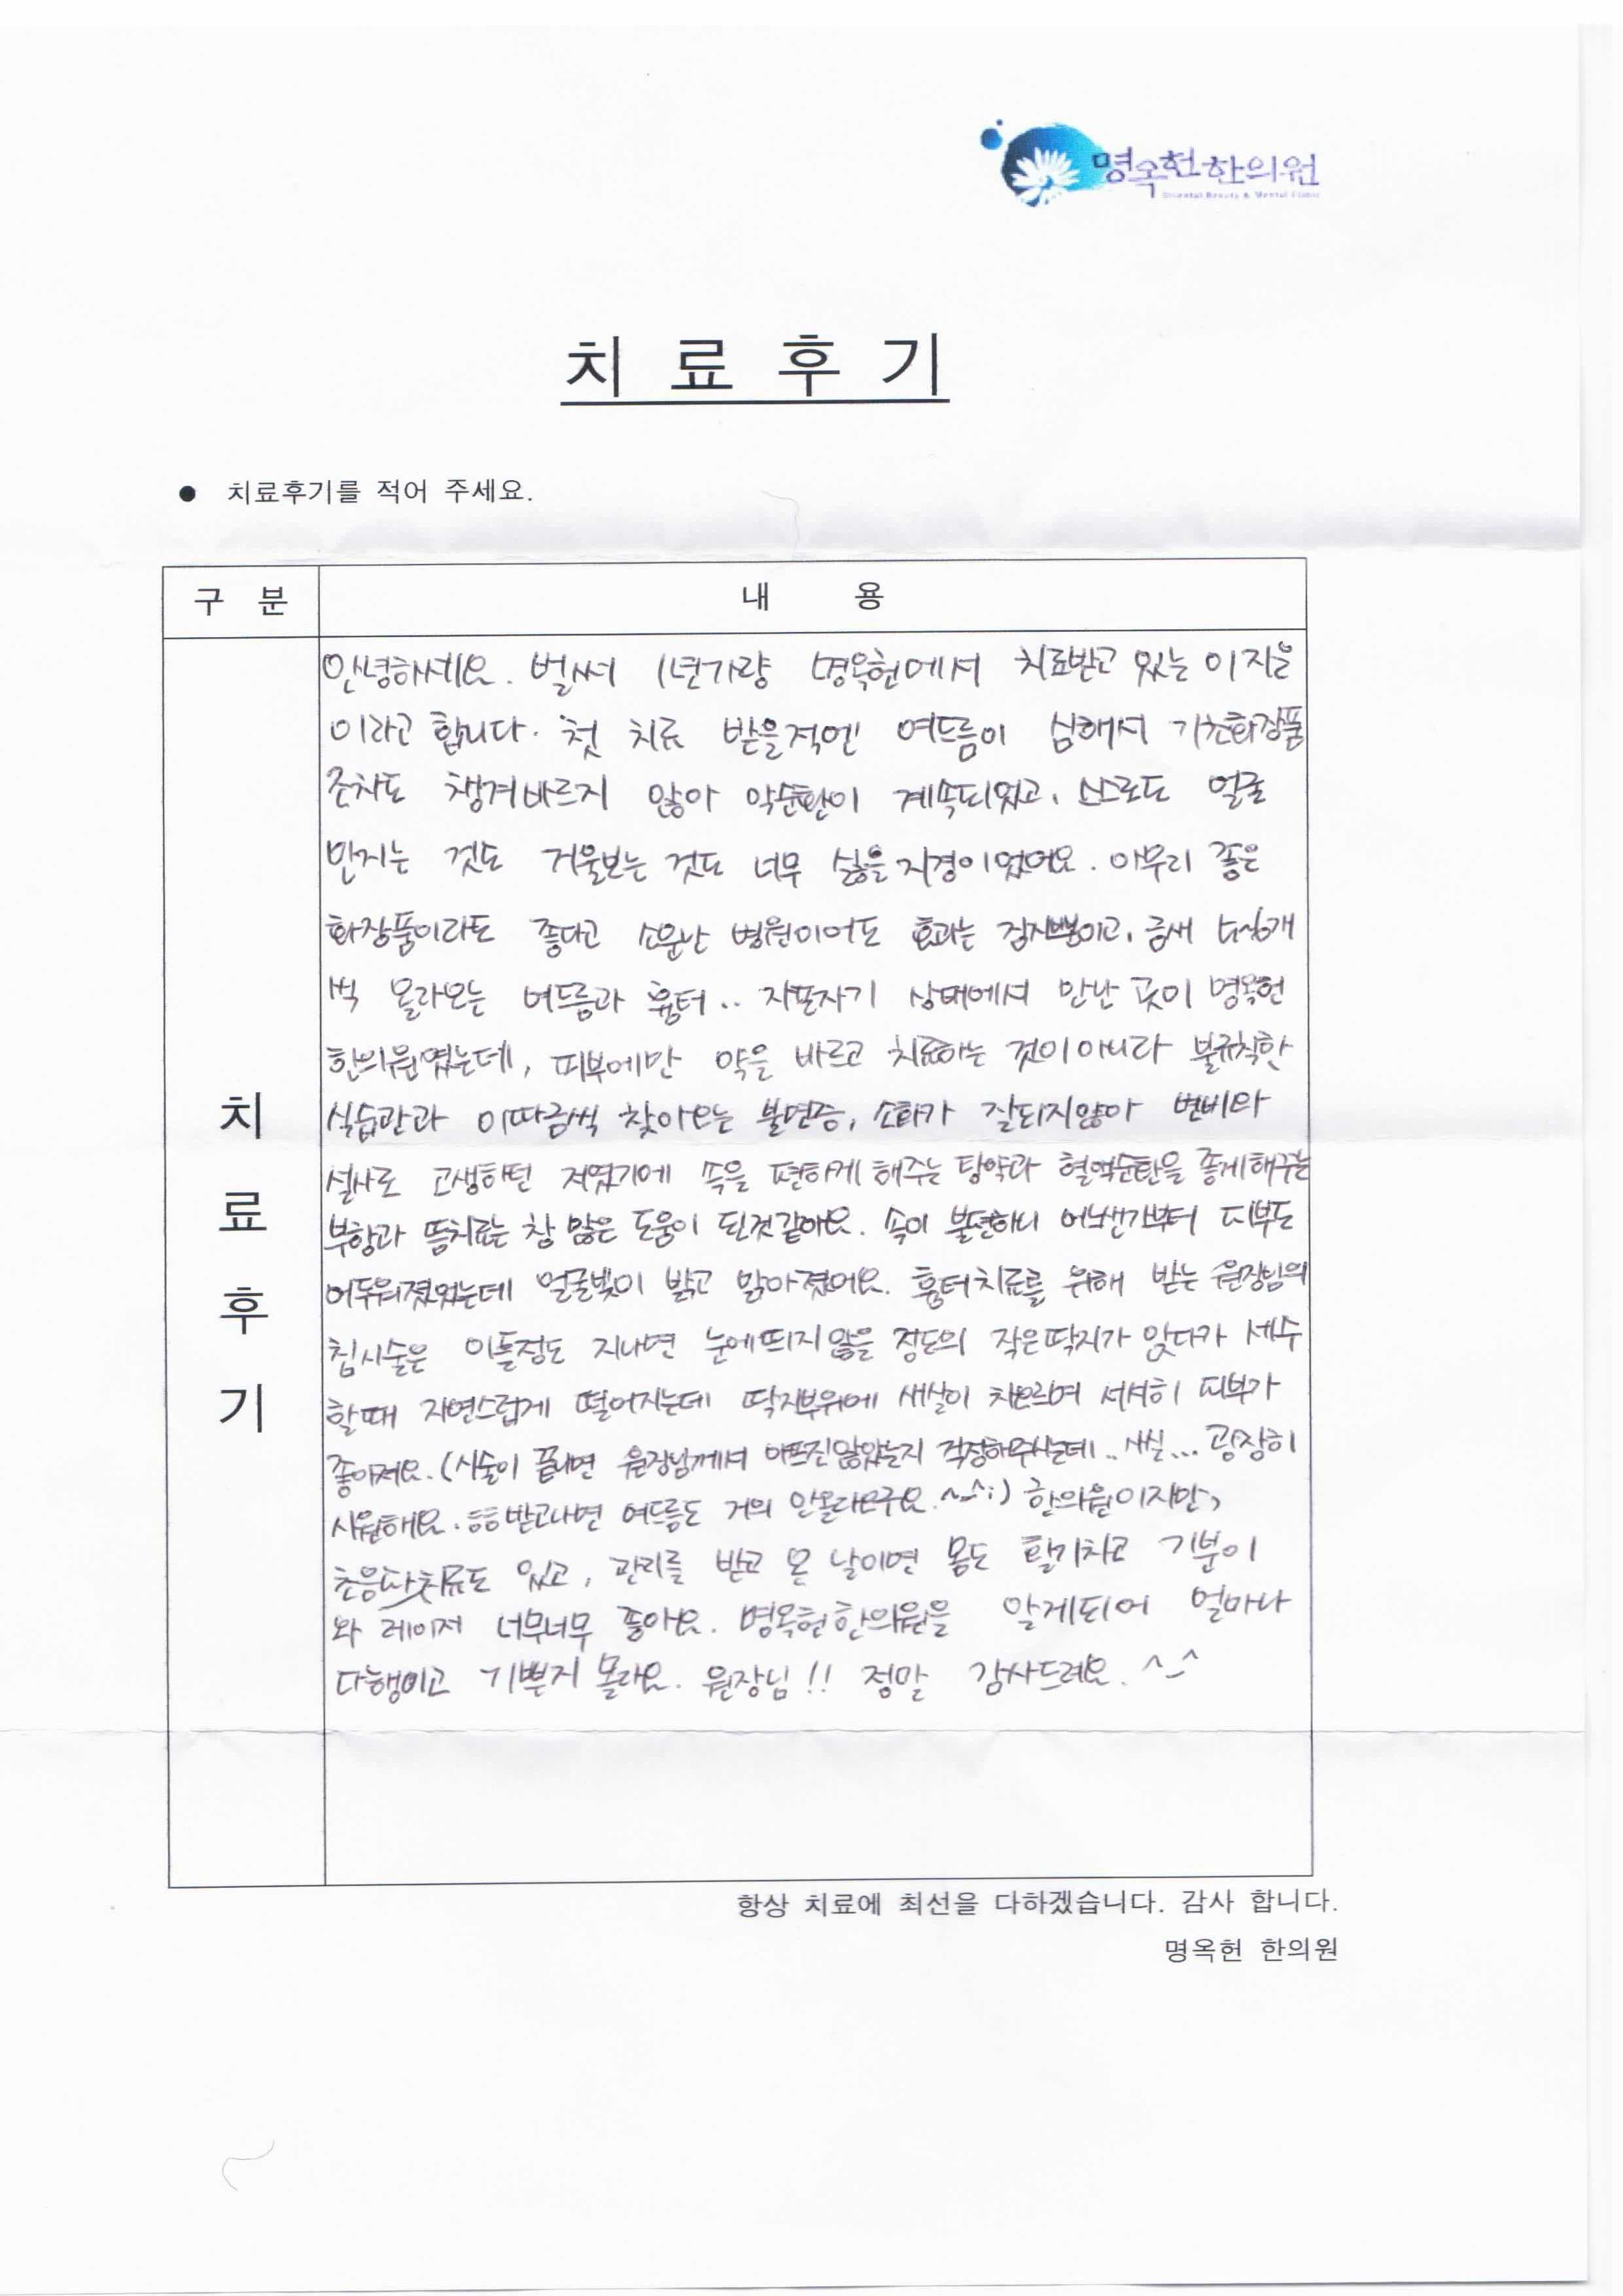 명옥헌한의원
Oriental Beauty & Mental Clinic
치 료 후 기
● 치료후기를 적어 주세요.
구 분 내 용
안녕하세요. 벌써 1년가량 명옥헌에서 치료받고 있는 이지은
이라고 합니다. 첫 치료 받을적엔 여드름이 심해서 기초화장품
조차도 챙겨바르지 않아 악순환이 계속되었고, 스스로도 얼굴
만지는 것도 거울보는 것도 너무 싫을지경이었어요. 아무리 좋은
화장품이라도 좋다고 소문난 병원이어도 효과는 잠시뿐이고, 금새
씩 올라오는 여드름과 흉터.. 자포자기 상태에서 만난 곳이 명옥헌
한의원였는데, 피부에만 약을 바르고 치료하는 것이아니라 불규칙한
식습관과 이따금씩 찾아오는 불면증, 소화가 잘되지않아 변비와
설사로 고생하던 저였기에 속을 편하게 해주는 탕약과 혈액순환을 좋게해주는
부항과 뜸치료는 참 많은 도움이 된것같아요. 속이 불편하니 어느샌가부터 피부도
어두워졌었는데 얼굴빛이 밝고 맑아졌어요. 흉터치료를 위해 받는 원장님의
침시술은 이틀정도 지나면 눈에띄지않을 정도의 작은딱지가 있다가 세수
할때 자연스럽게 떨어지는데 딱지부위에 새살이 차오르며 서서히 피부가
좋아져요. (시술이 끝나면 원장님께서 아프진않았는지 걱정해주시는데.. 사실... 굉장히
시원해요. 받고나면 여드름도 거의 안올라오구요. ^_^;) 한의원이지만,
초음파치료도 있고, 관리를 받고 온 날이면 몸도 활기차고 기분이
와 레이저 너무너무 좋아요. 명옥헌한의원을 알게되어 얼마나
다행이고 기쁜지 몰라요. 원장님!! 정말 감사드려요. ^_^
치
료
후
기
항상 치료에 최선을 다하겠습니다. 감사 합니다.
명옥헌 한의원